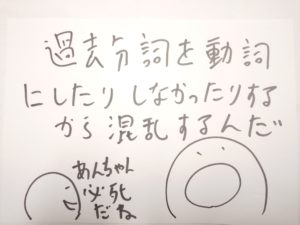 過去分詞を動詞
にしたりしなかったりする
から混乱するんだ
あんちゃん
必死
だね